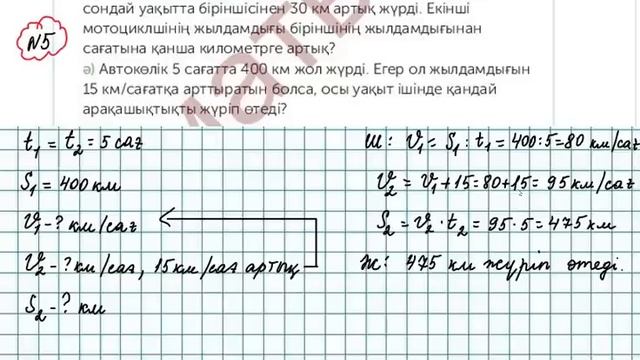 сондай уақытта біріншісінен 30 км артық жүрді. Екінші
№5
мотоциклшінің жылдамдығы біріншінің жылдамдығынан
сағатына қанша километрге артық?
ә) Автокөлік 5 сағатта 400 км жол жүрді. Егер ол жылдамдығын
15 км/сағатқа арттыратын болса, осы уақыт ішінде қандай
арақашықтықты жүріп өтеді?
t₁ = t₂ = 5 сағ
S₁ = 400 км
V₁ - ? км/сағ
V₂ - ? км/сағ, 15 км/сағ артық
S₂ - ? км
Ш: V₁ = S₁ : t₁ = 400:5 = 80 км/сағ
V₂ = V₁ + 15 = 80+15 = 95 км/сағ
S₂ = V₂ · t₂ = 95 · 5 = 475 км
Ж: 475 км жүріп өтеді.